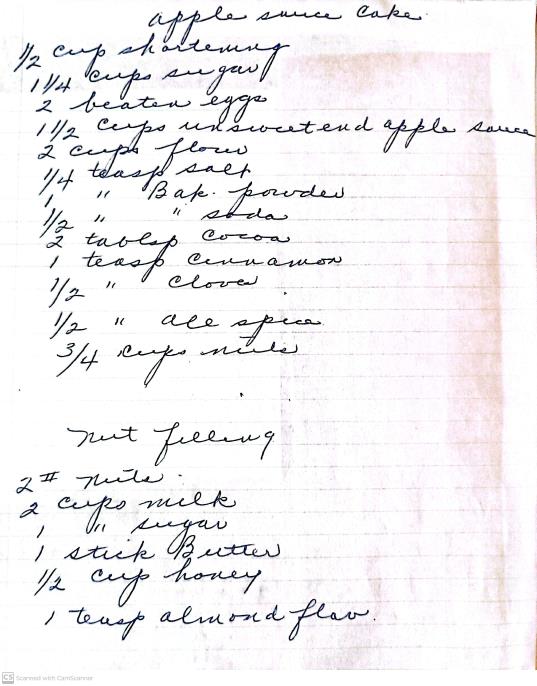 apple sauce cake
1/2 cup shortening
1 1/4 cups sugar
2 beaten eggs
1 1/2 cups unsweetend apple sauce
2 cups flour
1/4 teasp salt
1 " Bak. powder
1/2 " " soda
2 tablsp cocoa
1 teasp cinnamon
1/2 " clove
1/2 " all spice
3/4 cups nuts
nut filling
2 # nuts
2 cups milk
1 " sugar
1 stick Butter
1/2 cup honey
1 teasp almond flav.
CS Scanned with CamScanner